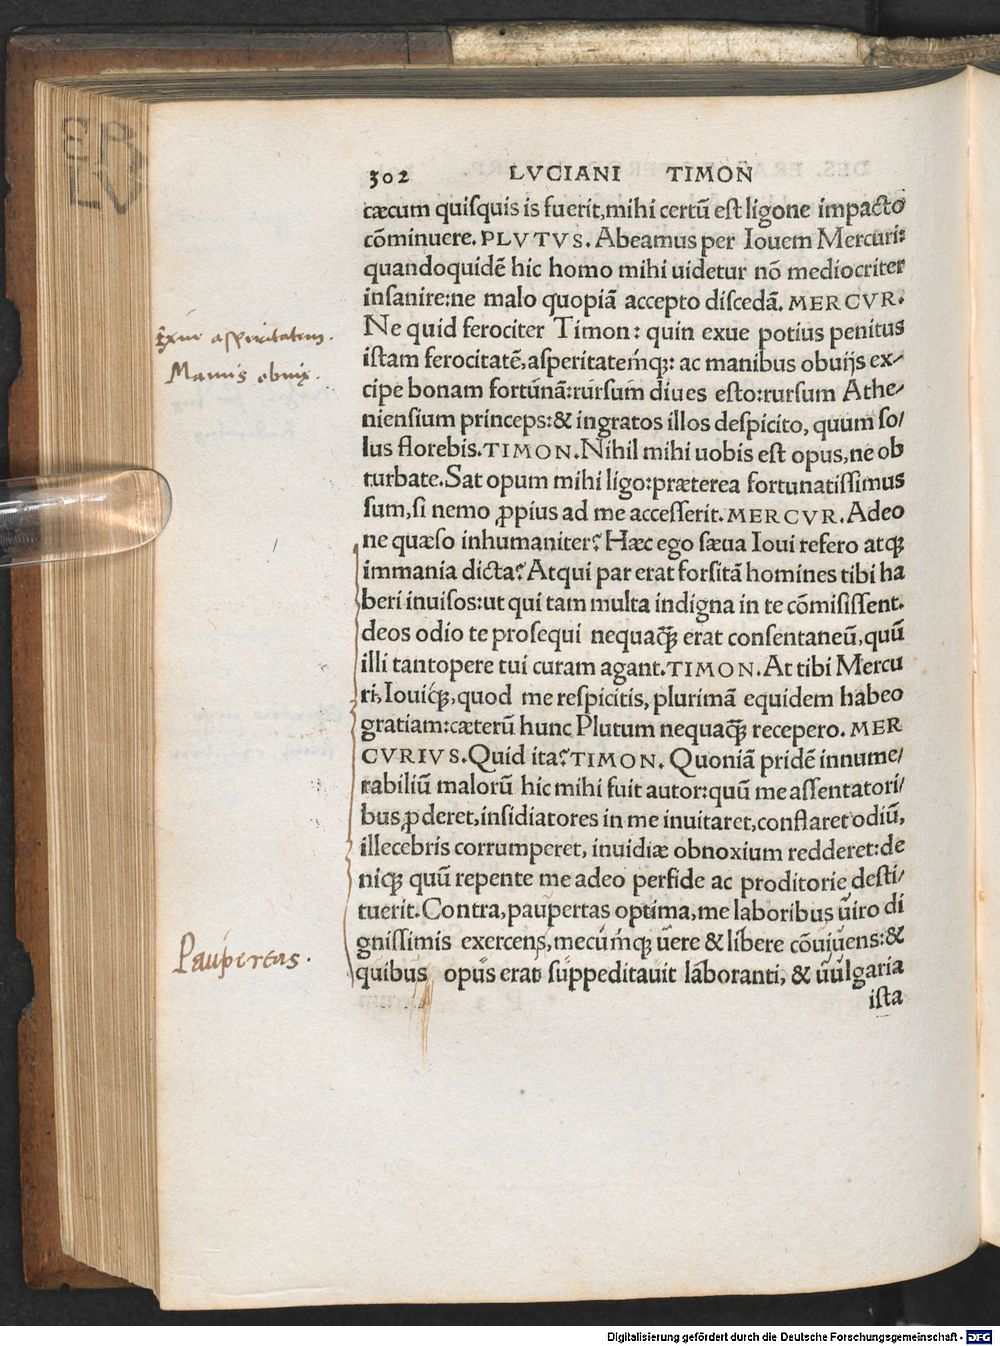 302 LVCIANI TIMON
cæcum quiſquis is fuerit,mihi certū eſt ligone impacto
cōminuere. PLVTVS. Abeamus per Iouem Mercuri:
quandoquidē hic homo mihi uidetur nō mediocriter
inſanire:ne malo quopiā accepto diſcedā. MERCVR.
Ne quid ferociter Timon: quin exue potius penitus
iſtam ferocitatē,aſperitateḿqꝫ: ac manibus obuijs ex/
cipe bonam fortunā:rurſum diues eſto:rurſum Athe/
nienſium princeps:& ingratos illos deſpicito, quum ſo/
lus florebis.TIMON.Nihil mihi uobis eſt opus,ne ob
turbate.Sat opum mihi ligo:præterea fortunatiſſimus
ſum,ſi nemo ꝓpius ad me acceſſerit.MERCVR.Adeo
ne quæſo inhumaniter? Hæc ego ſæua Ioui refero atqꝫ
immania dicta? Atqui par erat forſitā homines tibi ha
beri inuiſos:ut qui tam multa indigna in te cōmiſiſſent.
deos odio te proſequi nequaꝗ̃ erat conſentaneū,quū
illi tantopere tui curam agant.TIMON.At tibi Mercu
ri, Iouiqꝫ,quod me reſpicitis, plurimā equidem habeo
gratiam:cæterū hunc Plutum nequaꝗ̃ recepero. MER
CVRIVS.Quid ita? TIMON. Quoniā pridē innume/
rabiliū malorū hic mihi fuit autor:quū me aſſentatori/
bus ꝓderet,inſidiatores in me inuitaret,conflaret odiū,
illecebris corrumperet, inuidiæ obnoxium redderet:de
niqꝫ quū repente me adeo perfide ac proditorie deſti/
tuerit.Contra,paupertas optima,me laboribus uiro di
gniſſimis exercens,mecuḿqꝫ uere & libere cōuiuens:&
quibus opus erat ſuppeditauit laboranti, & uulgaria
iſta
Exue asperitatem.
Manus obuię.
Paupertas.
Digitalisierung gefördert durch die Deutsche Forschungsgemeinschaft - DFG